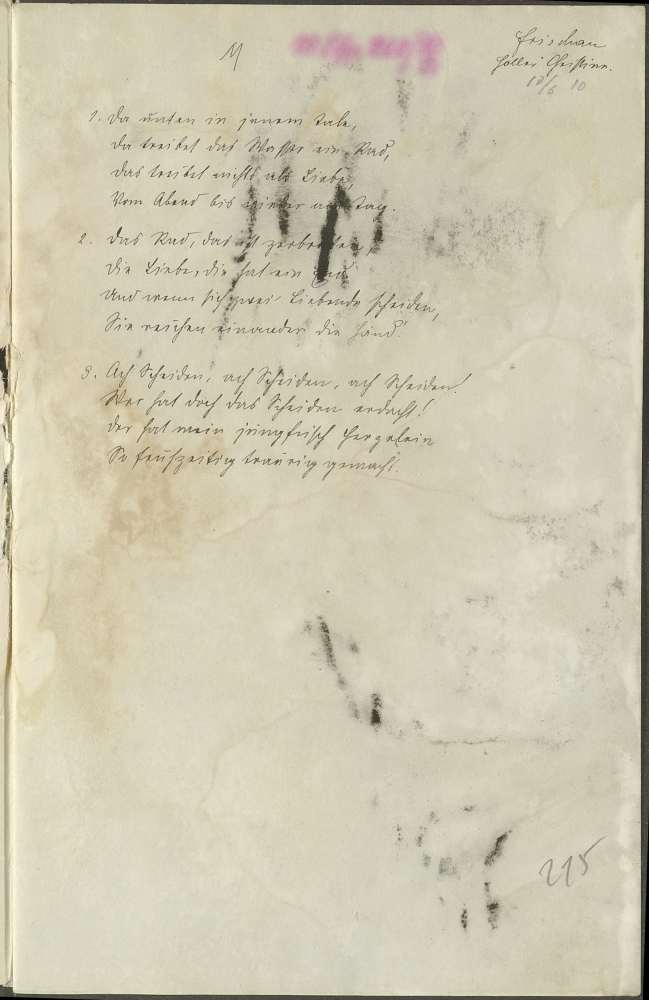 11
Frischau
Holler Christine.
18/6 10
1. Da unten in jenem Tale,
Da treibet das Wasser ein Rad,
Das treibet nichts als Liebe,
Vom Abend bis wieder an Tag.
2. Das Rad, das ist zerbrochen,
Die Liebe, die hat ein End
Und wenn sich zwei Liebende scheiden,
Sie reichen einander die Händ.
3. Ach Scheiden, ach Scheiden, ach Scheiden!
Wer hat doch das Scheiden erdacht!
Der hat mein jungfrisch Herzelein
So frühzeitig traurig gemacht.
215